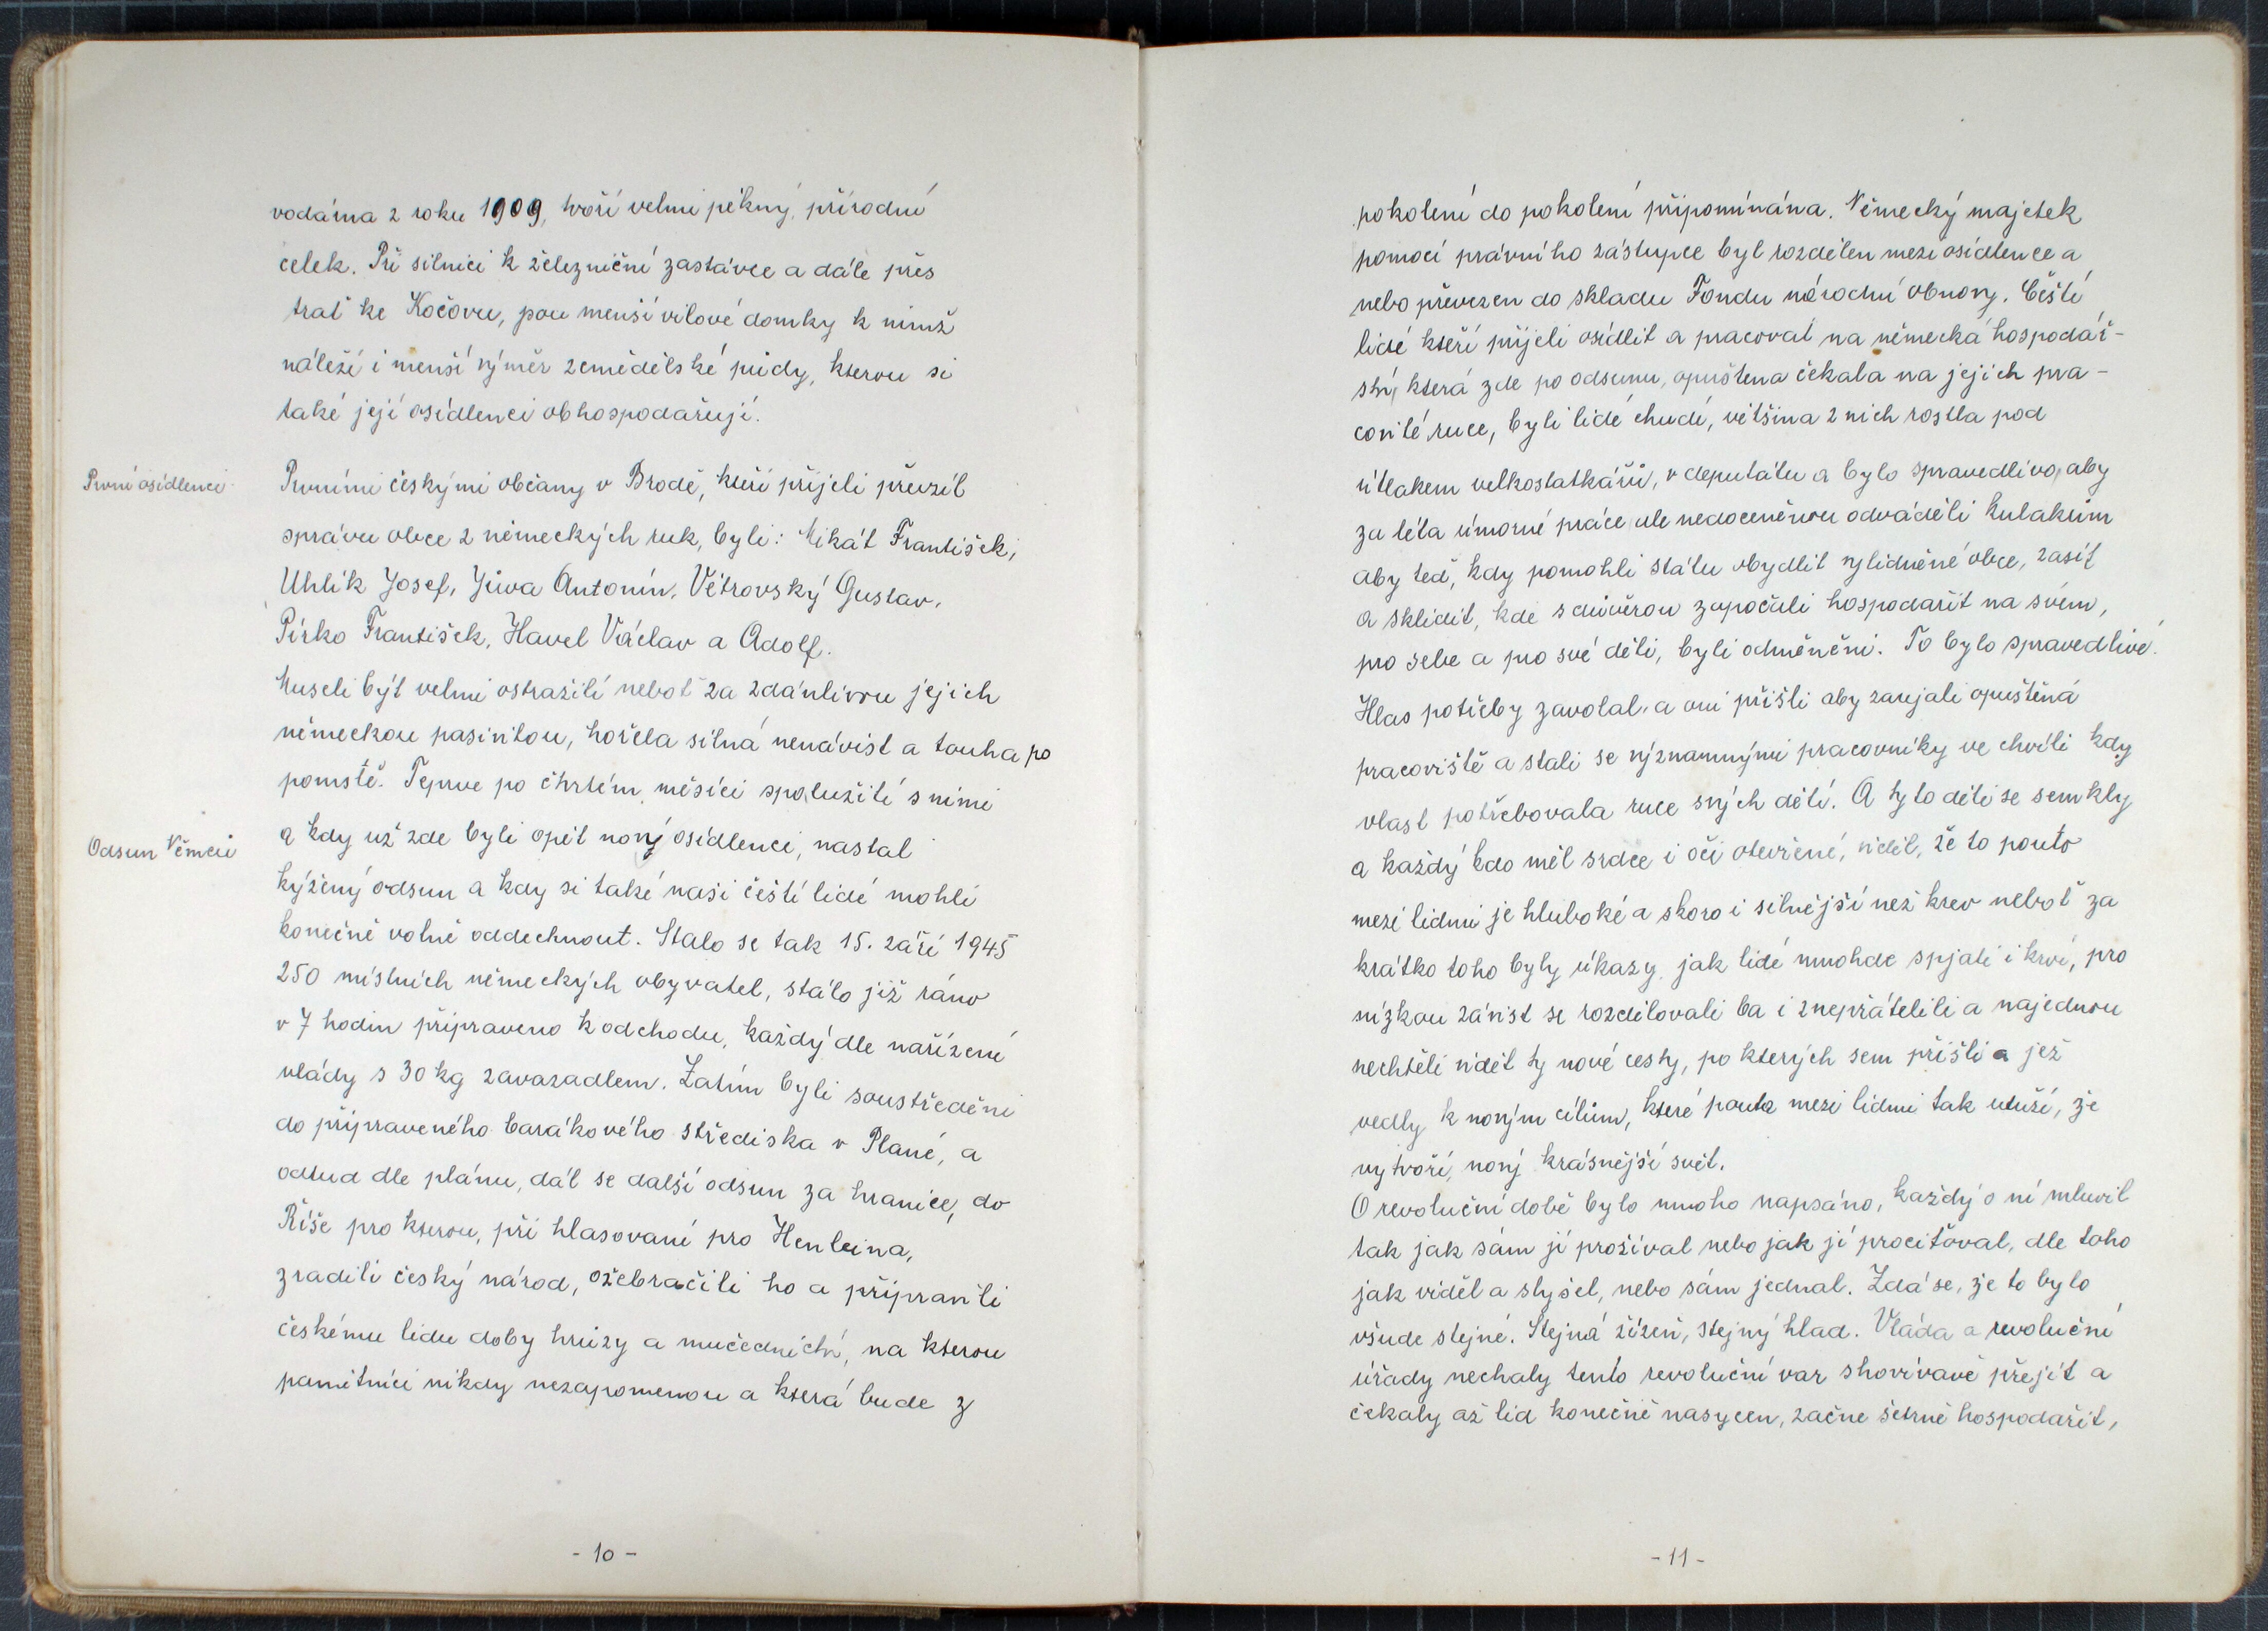 vodárna z roku 1909, tvoří velmi pěkný, přírodní
celek. Při silnici k železniční zastávce a dále přes
trať ke Kočovu, jsou menší vilové domky k nimž
náleží i menší výměr zemědělské půdy, kterou si
také její osídlenci obhospodařují.
První osídlenci
Prvními českými občany v Brodě, kteří přijeli převzít
správu obce z německých ruk, byli: Mikát František,
Uhlík Josef, Jůva Antonín, Větrovský Gustav,
Pírko František, Havel Václav a Adolf.
Museli být velmi ostražití neboť za zdánlivou jejich
německou pasivitou, hořela silná nenávist a touha po
pomstě. Teprve po čtvrtém měsíci spolužití s nimi
Odsun Němců
a kdy už zde byli opět nový osídlenci, nastal
kýžený odsun a kdy si také naši čeští lidé mohli
konečně volně oddechnout. Stalo se tak 15. září 1945
250 místních německých obyvatel, stálo již ráno
v 7 hodin připraveno k odchodu, každý dle nařízení
vlády s 30 kg zavazadlem. Zatím byli soustředěni
do připraveného barákového střediska v Plané, a
odtud dle plánu, dál se další odsun za hranice, do
Říše pro kterou, při hlasovaní pro Henleina,
zradili český národ, ožebračili ho a připravili
českému lidu doby hrůzy a mučednictví, na kterou
pamětníci nikdy nezapomenou a která bude z
- 10 -
pokolení do pokolení připomínána. Německý majetek
pomocí právního zástupce byl rozdělen mezi osídlence a
nebo převezen do skladu Fondu národní obnovy. Čeští
lidé kteří přijeli osídlit a pracovat na německá hospodář-
ství, která zde po odsunu, opuštena čekala na jejich pra-
covité ruce, byli lidé chudí, většina z nich rostla pod
útlakem velkostatkářů, v deputátu a bylo spravedlivo, aby
za léta úmorné práce ale nedoceněnou odváděli kulakům
aby teď, kdy pomohli státu obydlit vylidněné obce, zasít
a sklidit, kde s důvěrou započali hospodařit na svém,
pro sebe a pro své děti, byli odměněni. To bylo spravedlivé.
Hlas potřeby zavolal, a oni přišli aby zaujali opuštěná
pracoviště a stali se významnými pracovníky ve chvíli kdy
vlast potřebovala ruce svých dětí. A tyto děti se semkly
a každý kdo měl srdce i oči otevřené, viděl, že to pouto
mezi lidmi je hluboké a skoro i silnější než krev neboť za
krátko toho byly úkazy, jak lidé mnohde spjati i krví, pro
nízkou závist se rozdělovali ba i znepřátelili a najednou
nechtěli vidět ty nové cesty, po kterých sem přišli a jež
vedly k novým cílům, které pouta mezi lidmi tak utuží, že
vytvoří, nový krásnější svět.
O revoluční době bylo mnoho napsáno, každý o ní mluvil
tak jak sám jí prožíval nebo jak jí prociťoval, dle toho
jak viděl a slyšel, nebo sám jednal. Zdá se, že to bylo
všude stejné. Stejná žízeň, stejný hlad. Vláda a revoluční
úřady nechaly tento revoluční var shovívavě přejít a
čekaly až lid konečně nasycen, začne šetrně hospodařit,
- 11 -